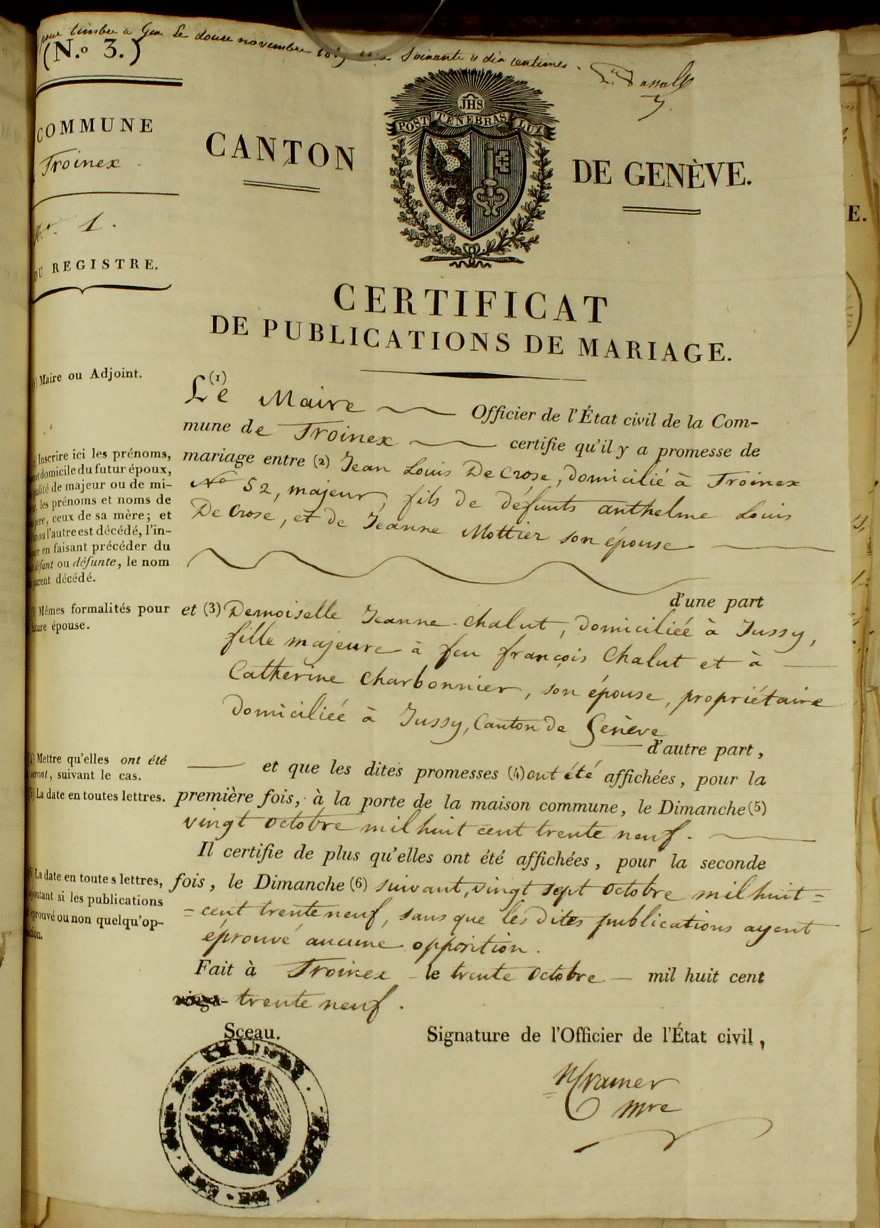 pour timbre à Gex Le douze novembre soixante & dix centimes.
(N.o 3.)
COMMUNE
Troinex.
N.o 1.
DU REGISTRE.
CANTON DE GENÈVE.
JHS
POST TENEBRAS LUX
CERTIFICAT
DE PUBLICATIONS DE MARIAGE.
Maire ou Adjoint.
Inscrire ici les prénoms,
domicile du futur époux,
qualité de majeur ou de mi-
les prénoms et noms de
père, ceux de sa mère; et
ou l'autre est décédé, l'in-
en faisant précéder du
défunt ou défunte, le nom
parent décédé.
Mêmes formalités pour
future épouse.
Mettre qu'elles ont été
seront, suivant le cas.
La date en toutes lettres.
La date en toutes lettres,
ajoutant si les publications
éprouvé ou non quelqu'op-
(1)
Le Maire Officier de l'État civil de la Com-
mune de Troinex certifie qu'il y a promesse de
mariage entre (2) Jean Louis DeCrose, domicilié à Troinex
No 52, majeur, fils de défunts anthelme Louis
DeCrose, et de Jeanne Mottier son épouse
d'une part
et (3) Demoiselle Jeanne Chalut, domiciliée à Jussy,
fille majeure à feu françois Chalut et à
Catherine Charbonnier, son épouse, propriétaire
domiciliée à Jussy, Canton de Genève
d'autre part,
et que les dites promesses (4) ont été affichées, pour la
première fois, à la porte de la maison commune, le Dimanche (5)
vingt octobre mil huit cent trente neuf.
Il certifie de plus qu'elles ont été affichées, pour la seconde
fois, le Dimanche (6) suivant, vingt sept octobre mil huit=
=cent trente neuf, sans que les dites publications ayent
éprouvé aucune opposition.
Fait à Troinex le trente octobre mil huit cent
trente neuf.
Sceau.
Signature de l'Officier de l'État civil,
Cramer
mre
E.